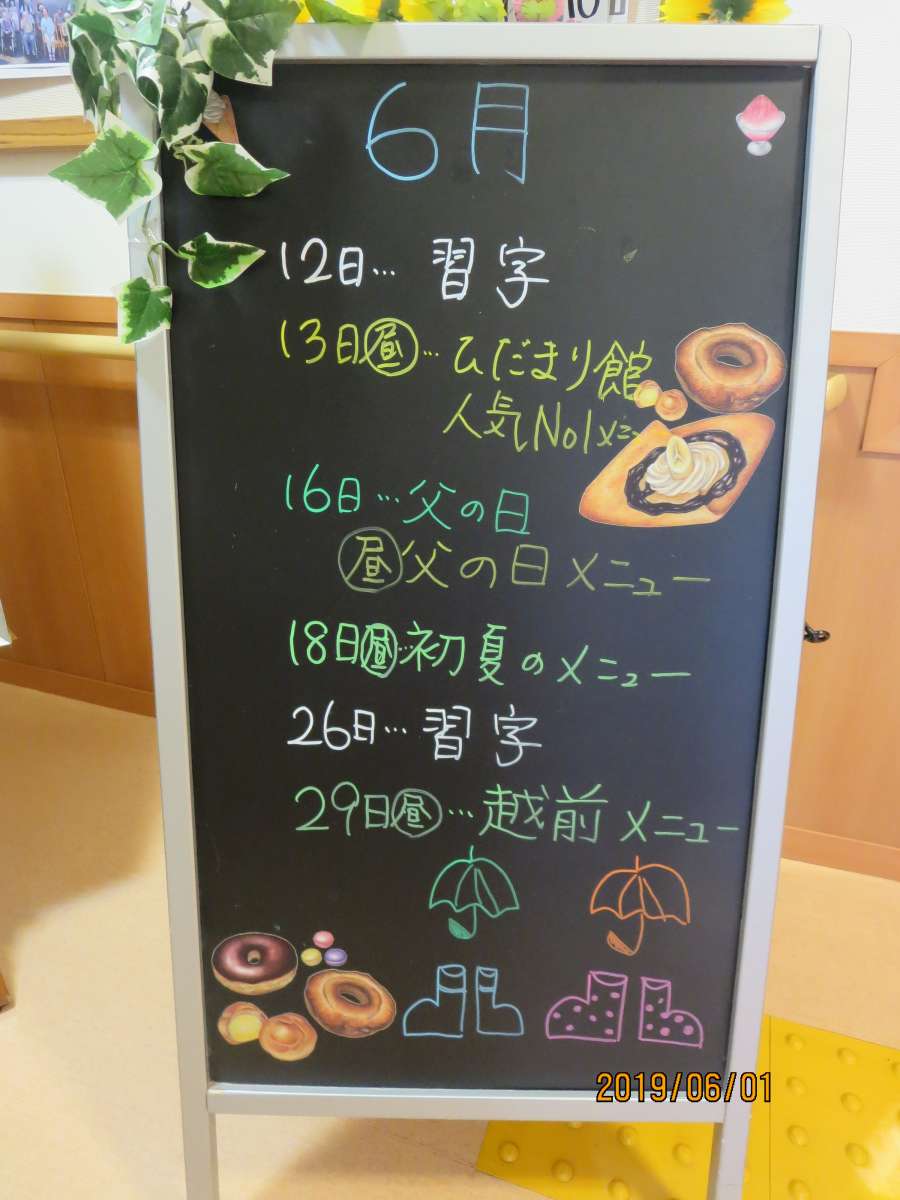 6月
12日…習字
13日㊐…ひだまり館
人気No1メニュー
16日…父の日
昼父の日メニュー
18日昼…初夏のメニュー
26日…習字
29日昼…越前メニュー
2019/06/01